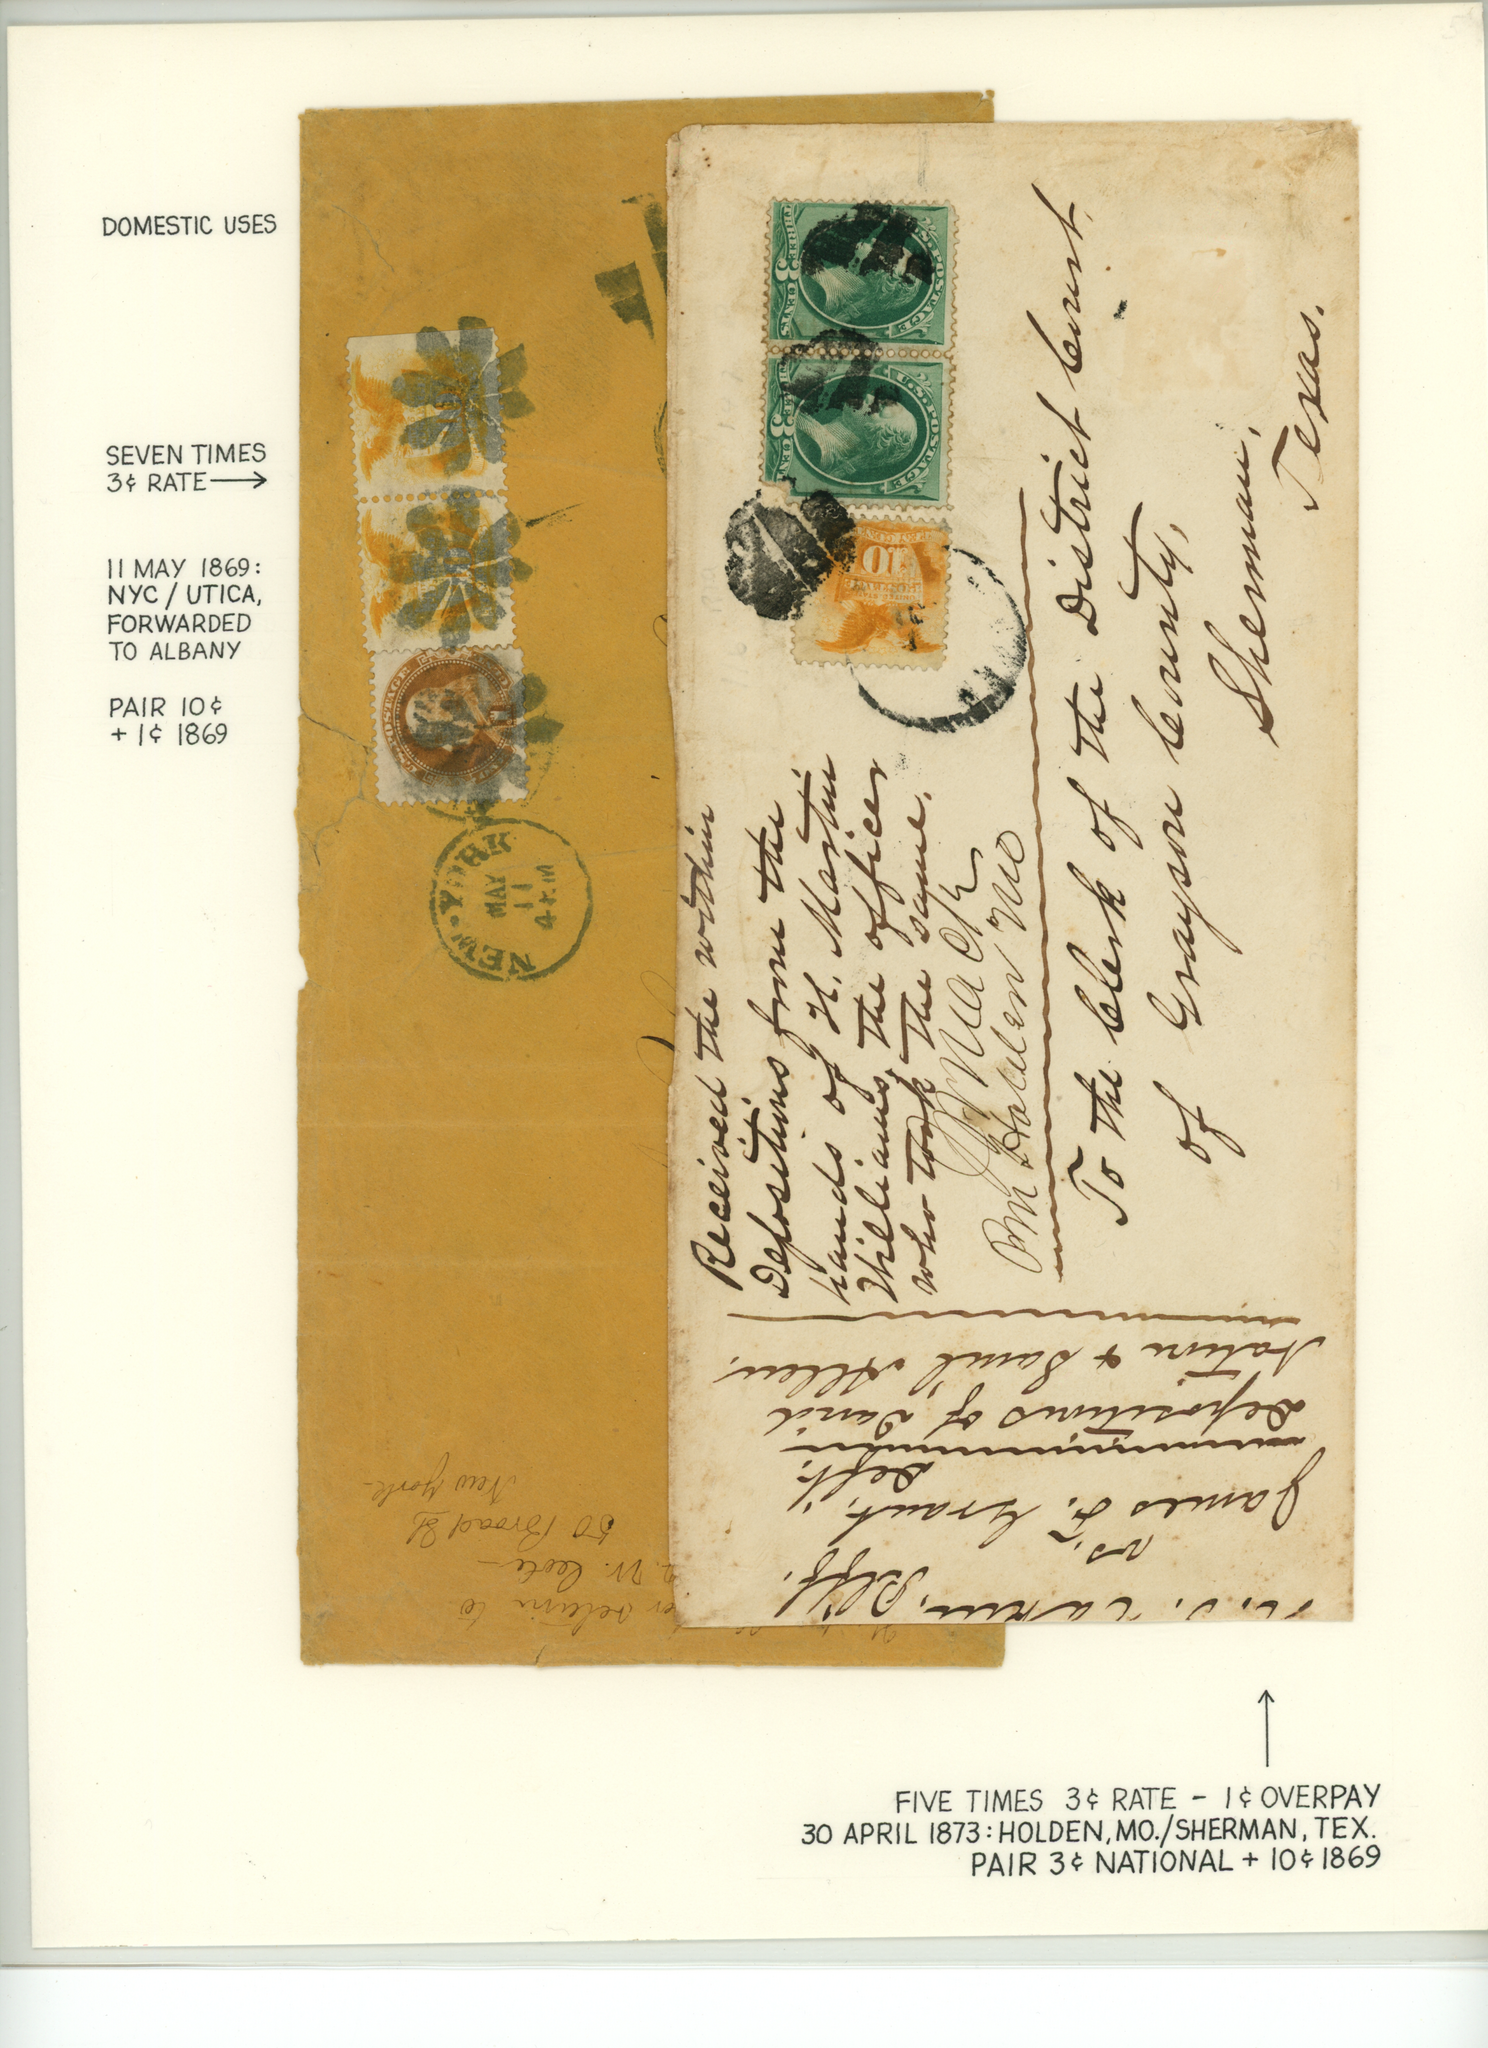 DOMESTIC USES
SEVEN TIMES
3¢ RATE →
11 MAY 1869:
NYC / UTICA,
FORWARDED
TO ALBANY
PAIR 10¢
+ 1¢ 1869
NEW-YORK
MAY
11
U.S. POSTAGE
U.S. POSTAGE
10
Received the within
Depositions from the
hands of H. Martin
Williams, the officer
who took the same.
PM Holden Mo
To the Clerk of the District Court
of Grayson County,
Sherman,
Texas.
vs.
James F. Grant, Deft.
Depositions of David
& Saml Allen.
return to
50 Broad St
New York
FIVE TIMES 3¢ RATE - 1¢ OVERPAY
30 APRIL 1873: HOLDEN, MO./SHERMAN, TEX.
PAIR 3¢ NATIONAL + 10¢ 1869